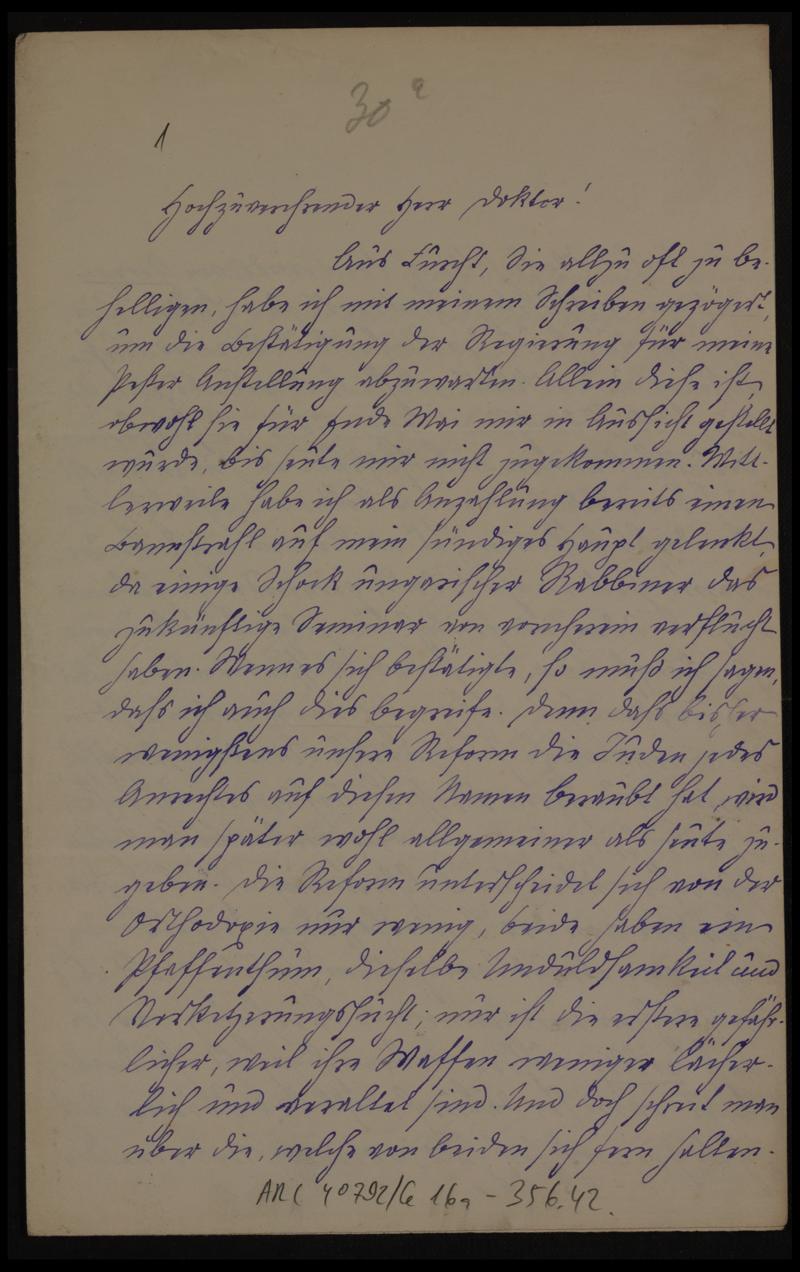 30a
1
Hochzuverehrender Herr Doktor!
Aus Furcht, Sie allzu oft zu be-
helligen, habe ich mit meinem Schreiben gezögert,
um die Bestätigung der Regierung für meine
Pester Anstellung abzuwarten. Allein diese ist,
obwohl sie für Ende Mai mir in Aussicht gestellt
wurde, bis heute mir nicht zugekommen. Mitt-
lerweile habe ich als Anzahlung bereits einen
Bannstrahl auf mein sündiges Haupt gelenkt,
da einige Schock ungarischer Rabbiner das
zukünftige Seminar von vornherein verflucht
haben. Wenn es sich bestätigte, so muß ich sagen,
dass ich auch dies begreife. Denn dass bisher
wenigstens unsere Reform die Juden jedes
Anrechtes auf diesen Namen beraubt hat, wird
man später wohl allgemeiner als heute zu-
geben. Die Reform unterscheidet sich von der
Orthodoxie nur wenig, beide haben ein
Pfaffenthum, dieselbe Unduldsamkeit und
Verketzerungssucht; nur ist die erstere gefähr-
licher, weil ihre Waffen weniger lächer-
lich und veraltet sind. Und doch schreit man
über die, welche von beiden sich fern halten.
ARC 4°792/G 16a - 356.42.